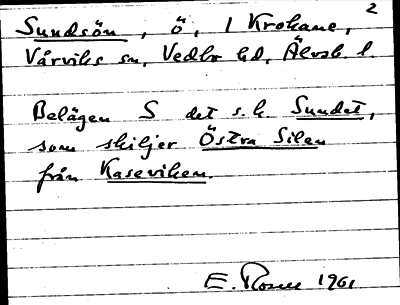 2
Sundsön, ö, 1 Krokane,
Vårviks sn, Vedbo hd, Älvsb. l.
Belägen S det s.k. Sundet,
som skiljer Östra Silen
från Kaseviken.
E. Rosell 1961